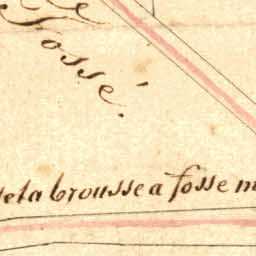 Fossé.
la brousse a fosse